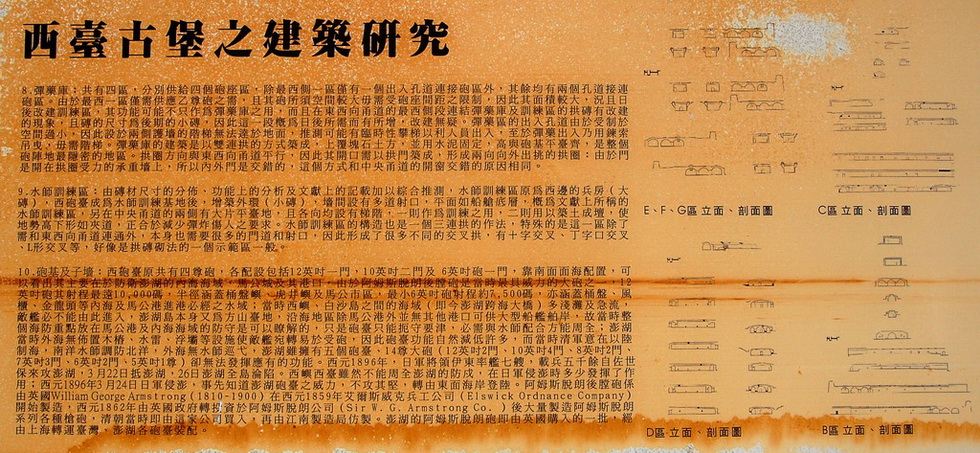 西臺古堡之建築研究
8.彈藥庫：共有四區，分別供給四個砲座區，除最西側一區僅有一個出入孔道連接砲區外，其餘均有兩個孔道接連
砲區。由於最西一區僅需供應乙尊砲之需，且其砲所須空間較大毋需受砲座間距之限制，因此其面積較大，況且日
後改建訓練區，其功能可能不只作爲彈藥庫之用，而且在東西向甬道的最西側段連結彈藥庫及訓練區的拱磚有改建
的現象，且磚的尺寸爲後期的小磚，因此這一段概爲日後所需而有所增，改建無疑。彈藥庫區的出入孔道由於受制
空間過小，因此設於兩側護墻的階梯無法達於地面，推測可能有臨時性攀梯以利人員出入，至於彈藥出入乃用鍊索
吊曳，毋需階梯。彈藥庫的建築是以雙連拱的方式築成，上覆塊石土方，並用水泥固定，高與砲基平臺齊，是整個
砲陣地最隱密的地區。拱圈方向與東西向甬道平行，因此其開口需以拱門築成，形成兩向向外出挑的拱圈；由於門
是開在拱圈受力的承重墻上，所以內外門是交錯的，這個方式和中央甬道的開窗交錯的原因相同。
9.水師訓練區：由磚材尺寸的分佈、功能上的分析及文獻上的記載加以綜合推測，水師訓練區原爲西邊的兵房（大
磚），西砲臺成爲水師訓練基地後，增築外環（小磚），墻間設有多道射口，平面如船艙底層，概爲文獻上所稱的
水師訓練區，另在中央甬道的兩側有大片平臺地，且各向均設有梯階，一則作爲訓練之用，二則用以築土成壇，使
地勢高下形如夾道，正合於減少彈炸傷人之要求。水師訓練區的構造也是一個三連拱的作法，特殊的是這一區除了
需和東西向甬道連通外，本身也需要很多的門道和射口，因此形成了很多不同的交叉拱，有十字交叉、丁字口交叉
、L形交叉等，好像是拱磚砌法的一個示範區一般。
10.砲基及子墻：西砲臺原共有四尊砲，各配設包括12英吋一門，10英吋二門及 6英吋砲一門，靠南面面海配置，可
以看出其主要在於防衛澎湖的內海海域、馬公城及其港口。由於阿姆斯脫朗後膛砲是當時最具威力的大砲之一，12
英吋砲其射程最遠10,000碼，半徑涵蓋桶盤嶼、虎井嶼及馬公市區，最小6英吋砲射程約7,500碼，亦涵蓋桶盤、風
櫃、金龍頭等內海及馬公灣進港必經之水域；當時西嶼、白沙島之間的海域（今澎湖跨海大橋）多淺灘及急流，
敵艦必不能由此進入，澎湖島基本身又爲方山臺地，沿海地區除馬公港外並無其他港口可供大型船艦舶岸，故當時整
個海防重點放在馬公港及內海海域的防守是可以瞭解的，只是砲臺只能扼守要津，必需與水師配合方能周全；澎湖
當時外海無佈置木樁、水雷、浮壩等設施使敵艦宛轉易於受砲，因此砲臺功能自然減低許多，而當時清軍意在以陸
制海，南洋水師調防北洋，外海無水師巡弋，澎湖雖擁有五個砲臺、14尊大砲（12英吋2門，10英吋4門，8英吋2門，
7英吋3門，6英吋2門，5英吋1尊）卻無法發揮應有的功能。西元1896年，日軍將領伊東率艦七艘，載兵五千餘自佐世
保來攻澎湖，3月22日抵澎湖，26日澎湖全島淪陷。西嶼西臺雖然不能周全澎湖的防戍，在日軍侵澎時多少發揮了作
用；西元1896年3月24日日軍侵澎，事先知道澎湖砲臺之威力，不攻其堅，轉由東面海岸登陸。阿姆斯脫朗後膛砲係
由英國William George Armstrong (1810-1900) 在西元1859年艾爾斯威克兵工公司 (Elswick Ordnance Company)
開始製造，西元1862年由英國政府轉投資於阿姆斯脫朗公司 (Sir W. G. Armstrong Co. ) 後大量製造阿姆斯脫朗
系列各種槍砲，清朝當時即由這家公司買入，再由江南製造局仿製。澎湖的阿姆斯脫朗砲即由英國購入的一批，經
由上海轉運臺灣，澎湖各砲臺裝配。
E、F、G區 立面、剖面圖
C區 立面、剖面圖
D區 立面、剖面圖
B區 立面、剖面圖